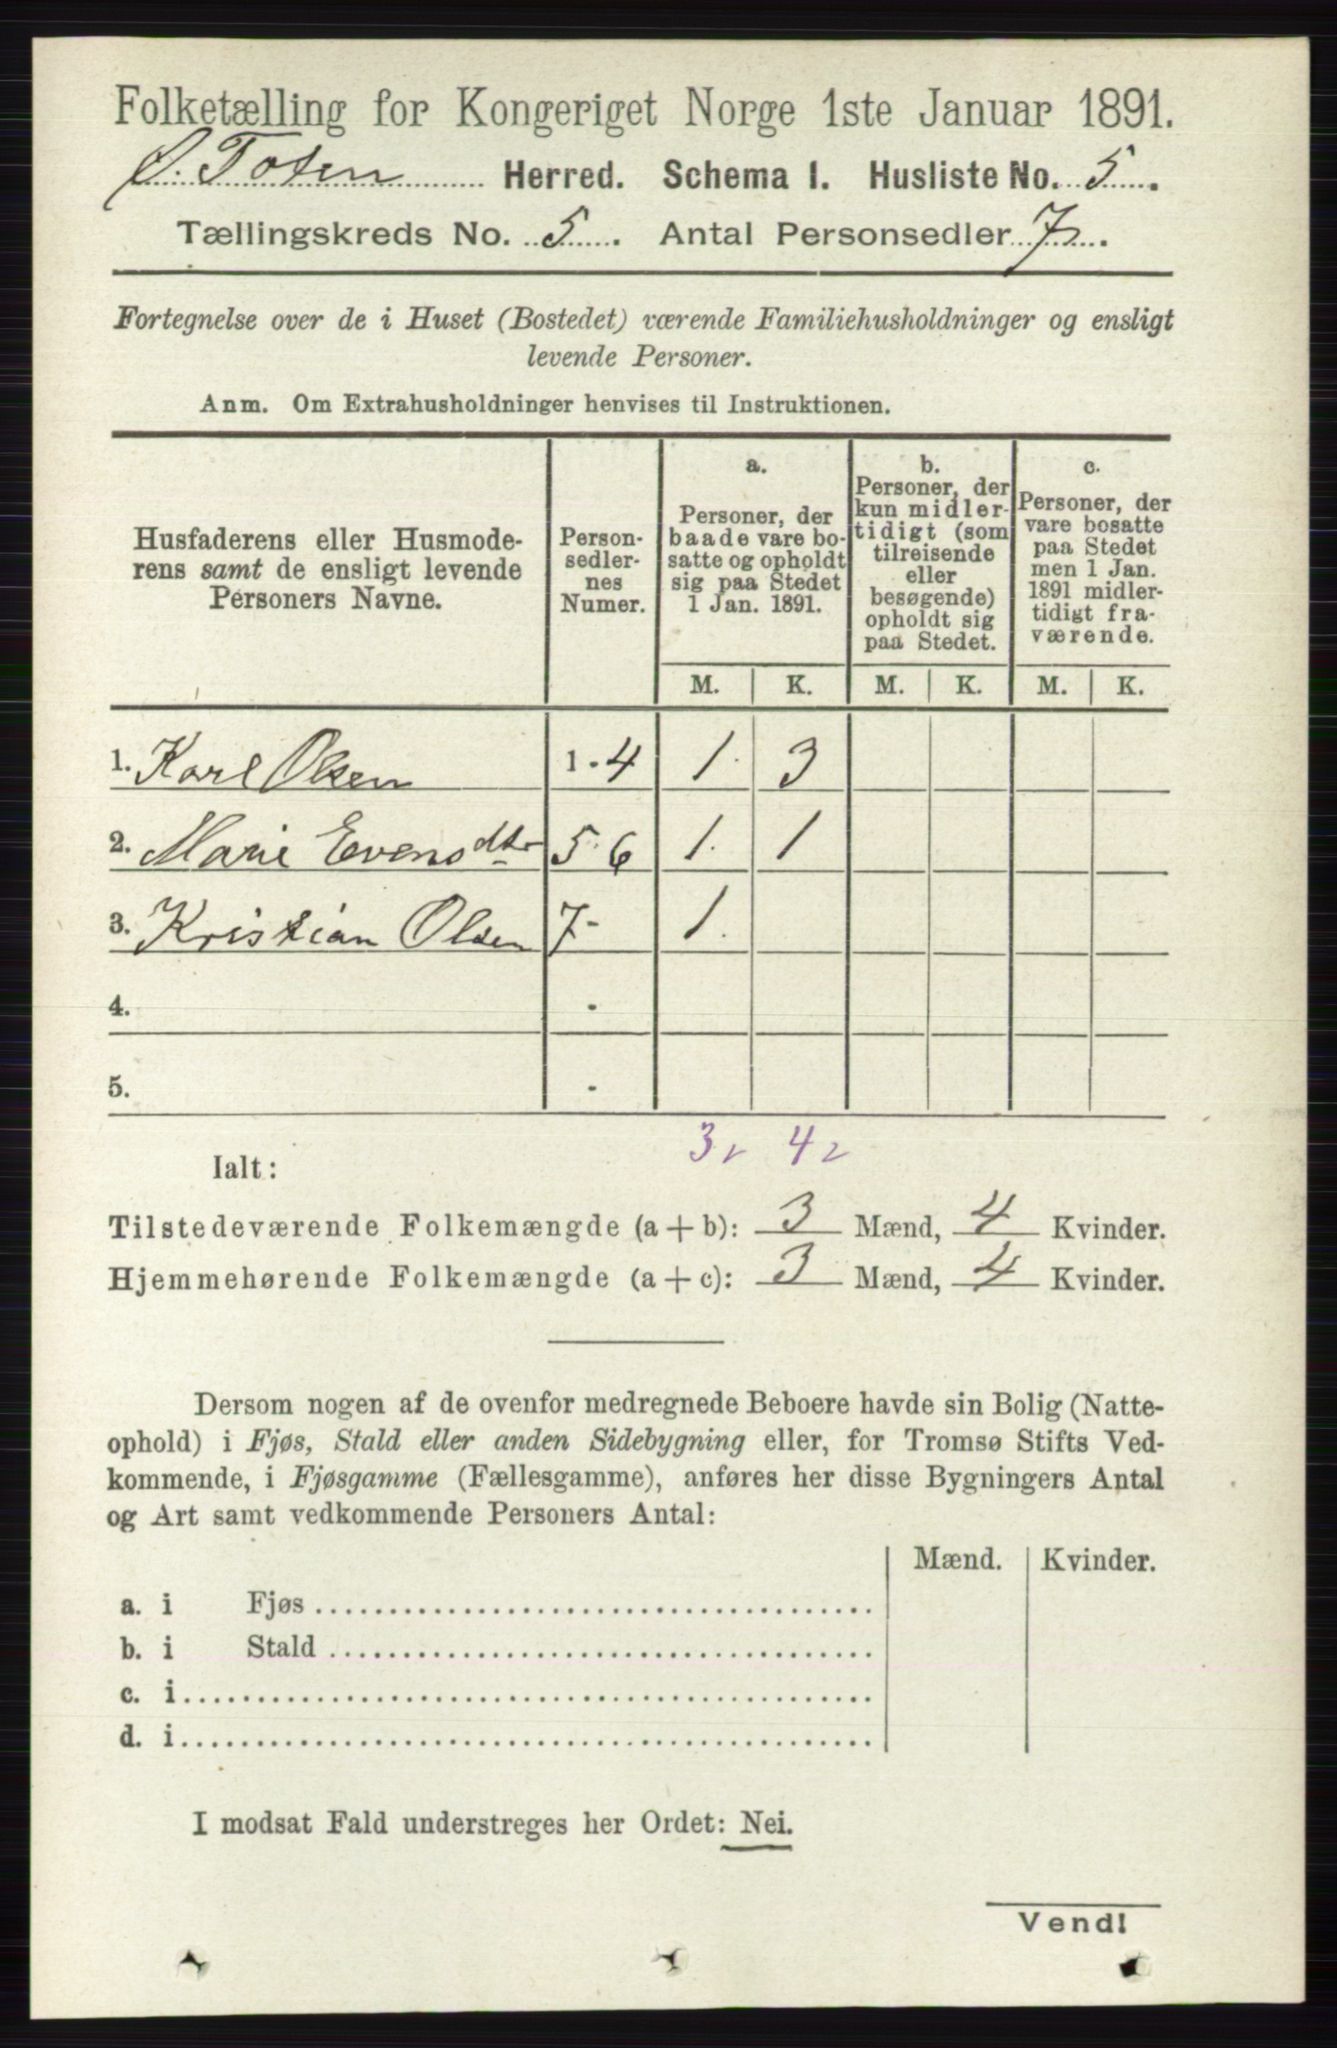 Folketælling for Kongeriget Norge 1ste Januar 1891.
Ø. Toten Herred. Schema 1. Husliste No. 5.
Tællingskreds No. 5. Antal Personsedler 7.
Fortegnelse over de i Huset (Bostedet) værende Familiehusholdninger og ensligt
levende Personer.
Anm. Om Extrahusholdninger henvises til Instruktionen.
Husfaderens eller Husmode-
rens samt de ensligt levende
Personers Navne.
Person-
sedler-
nes
Numer.
a.
Personer, der
baade vare bo-
satte og opholdt
sig paa Stedet
1 Jan. 1891.
b.
Personer, der
kun midler-
tidigt (som
tilreisende
eller
besøgende)
opholdt sig
paa Stedet.
c.
Personer, der
vare bosatte
paa Stedet
men 1 Jan.
1891 midler-
tidigt fra-
værende.
M. K. M. K. M. K.
1. Karl Olsen 1 - 4 1. 3
2. Marie Evensdtr 5 - 6 1. 1
3. Kristian Olsen 7 - 1.
4. -
5. -
3 4
Ialt:
Tilstedeværende Folkemængde (a + b): 3 Mænd, 4 Kvinder.
Hjemmehørende Folkemængde (a + c): 3 Mænd, 4 Kvinder.
Dersom nogen af de ovenfor medregnede Beboere havde sin Bolig (Natte-
ophold) i Fjøs, Stald eller anden Sidebygning eller, for Tromsø Stifts Ved-
kommende, i Fjøsgamme (Fællesgamme), anføres her disse Bygningers Antal
og Art samt vedkommende Personers Antal:
Mænd. Kvinder.
a. i Fjøs
b. i Stald
c. i
d. i
I modsat Fald understreges her Ordet: Nei.
Vend!